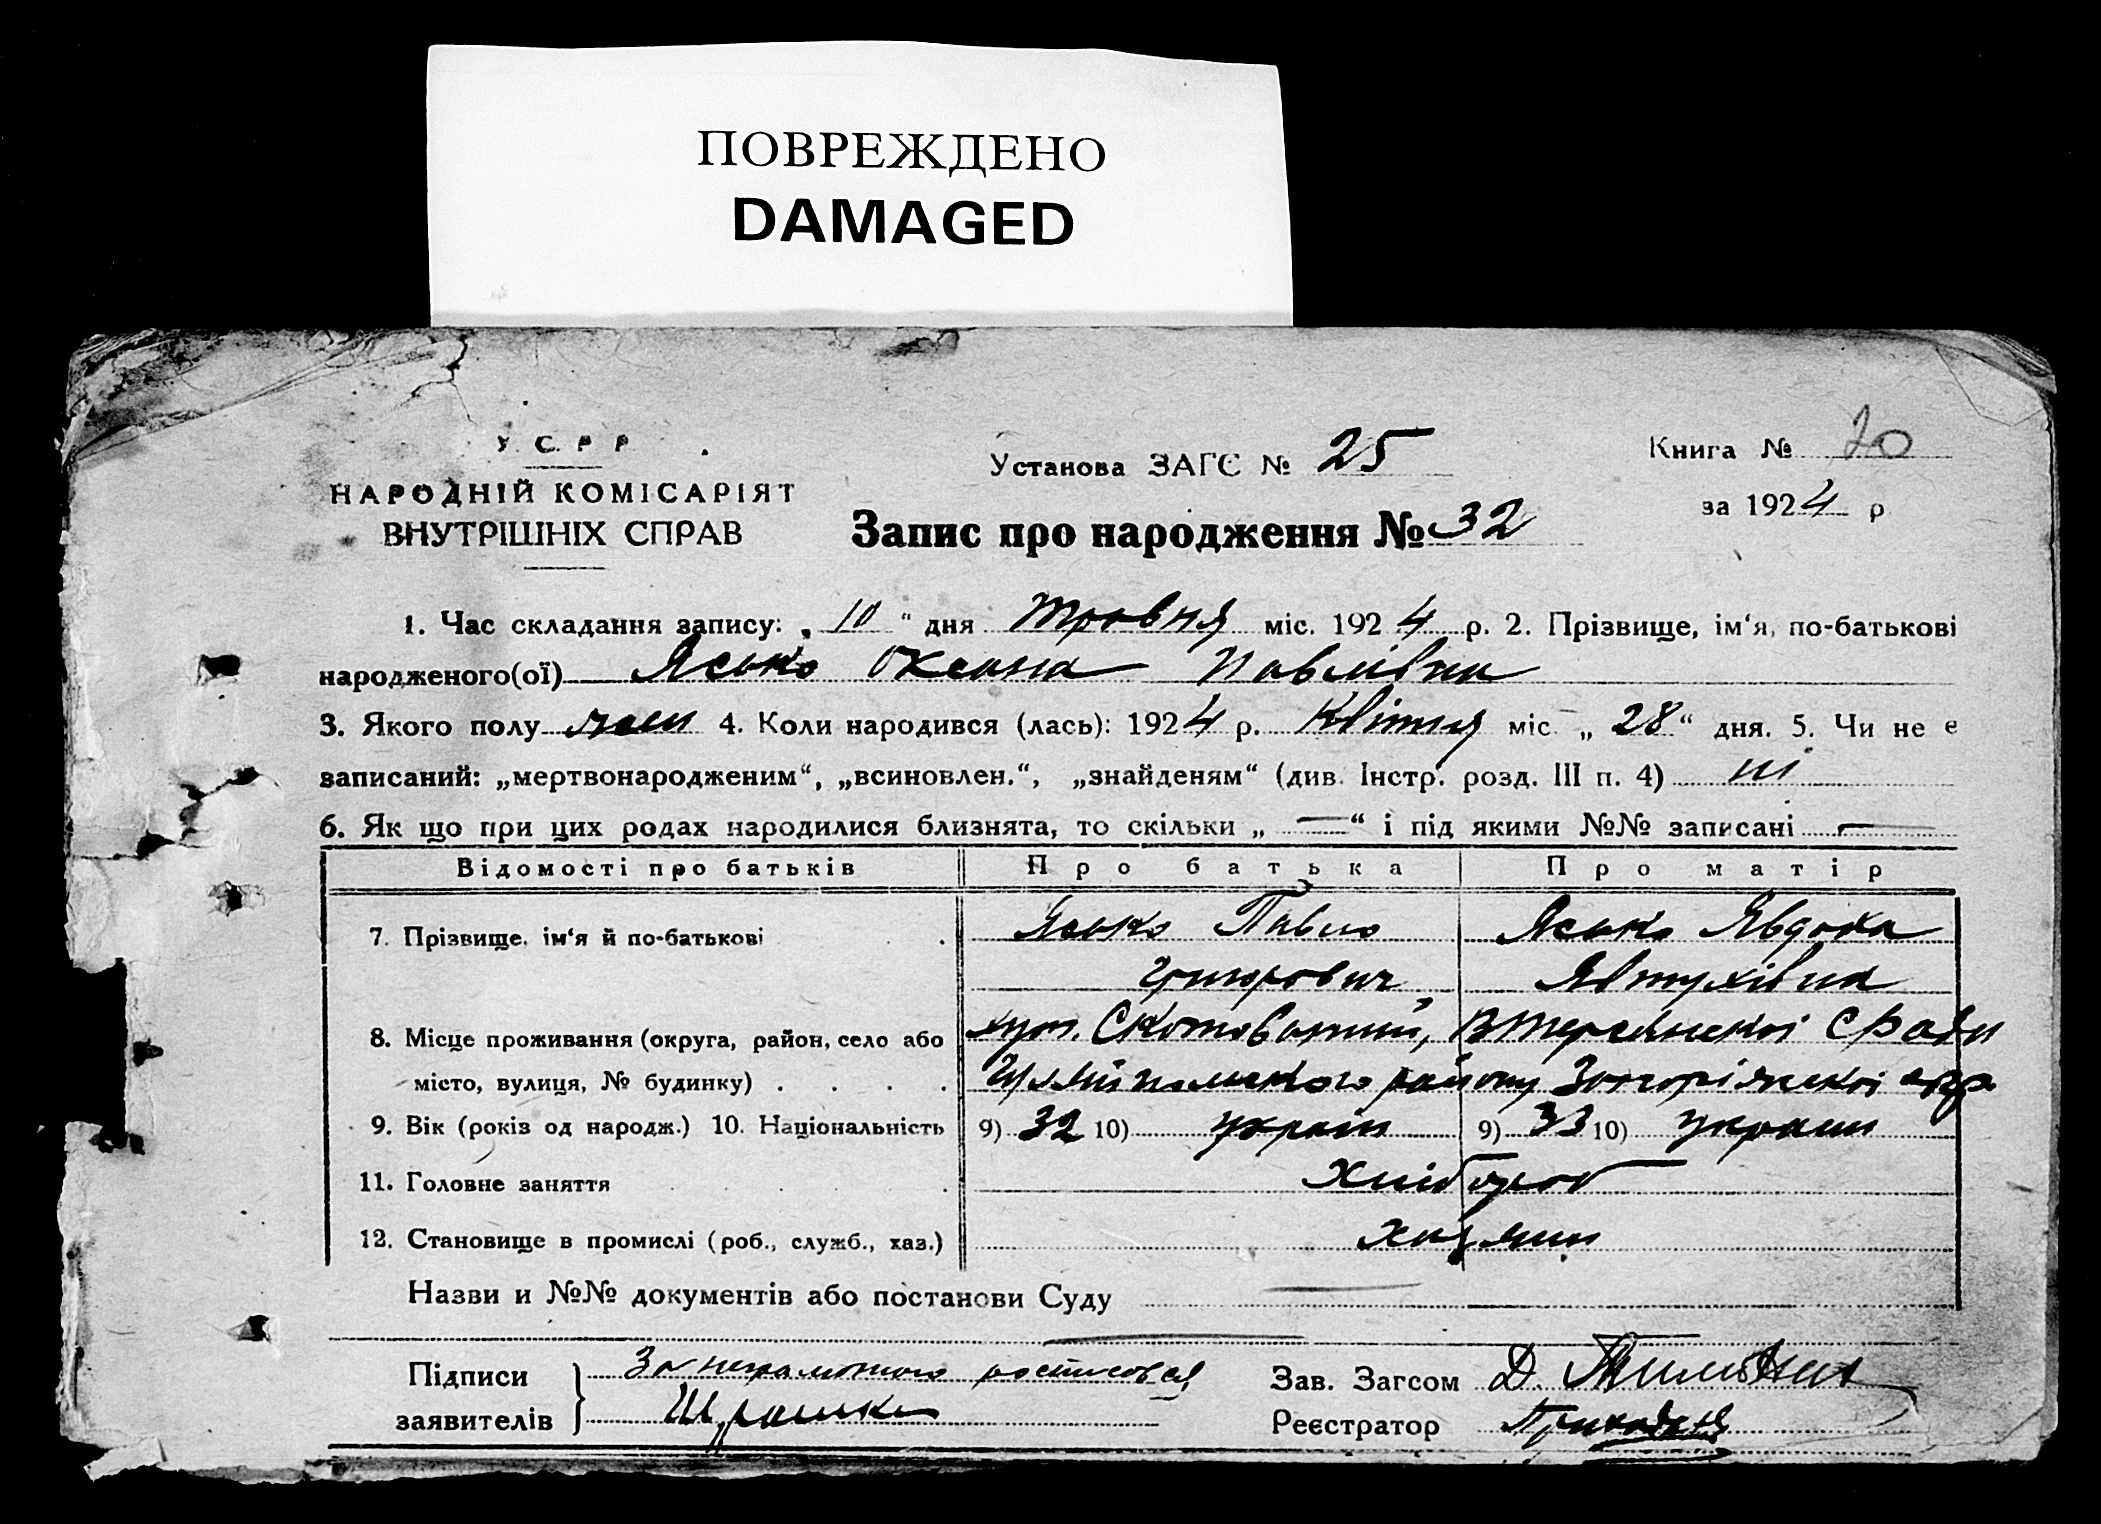 ПОВРЕЖДЕНО
DAMAGED
У. С. Р. Р.
НАРОДНІЙ КОМІСАРІЯТ
ВНУТРІШНІХ СПРАВ
Установа ЗАГС № 25
Книга № 20
за 1924 р
Запис про народження № 32
1. Час складання запису: „ 10 " дня травня міс. 1924 р. 2. Прізвище, ім‘я, по-батькові
народженого(ої) Ясько Оксана Павлівна
3. Якого полу жен 4. Коли народився (лась): 1924 р. Квітня міс „ 28 “ дня. 5. Чи не є
записаний: „мертвонародженим“, „всиновлен.“, „знайденям“ (див. Інстр. розд. III п. 4) ні
6. Як що при цих родах народилися близнята, то скільки „ — “ і під якими №№ записані —
Відомості про батьків Про батька Про матір
7. Прізвище, ім‘я й по-батькові Ясько Павло Ясько Явдоха
Григорович Явтухівна
8. Місце проживання (округа, район, село або хут. Скотоватий,
місто, вулиця, № будинку) Гуляйпільського району Запоріжської окр.
9. Вік (років од народж.) 10. Національність 9) 32 10) україн 9) 33 10) украин
11. Головне заняття Хлібороб
12. Становище в промислі (роб., служб., хаз.) хазяин
Назви и №№ документів або постанови Суду —
Підписи За неграмотного
заявителів
Зав. Загсом Д.
Реєстратор Приходько